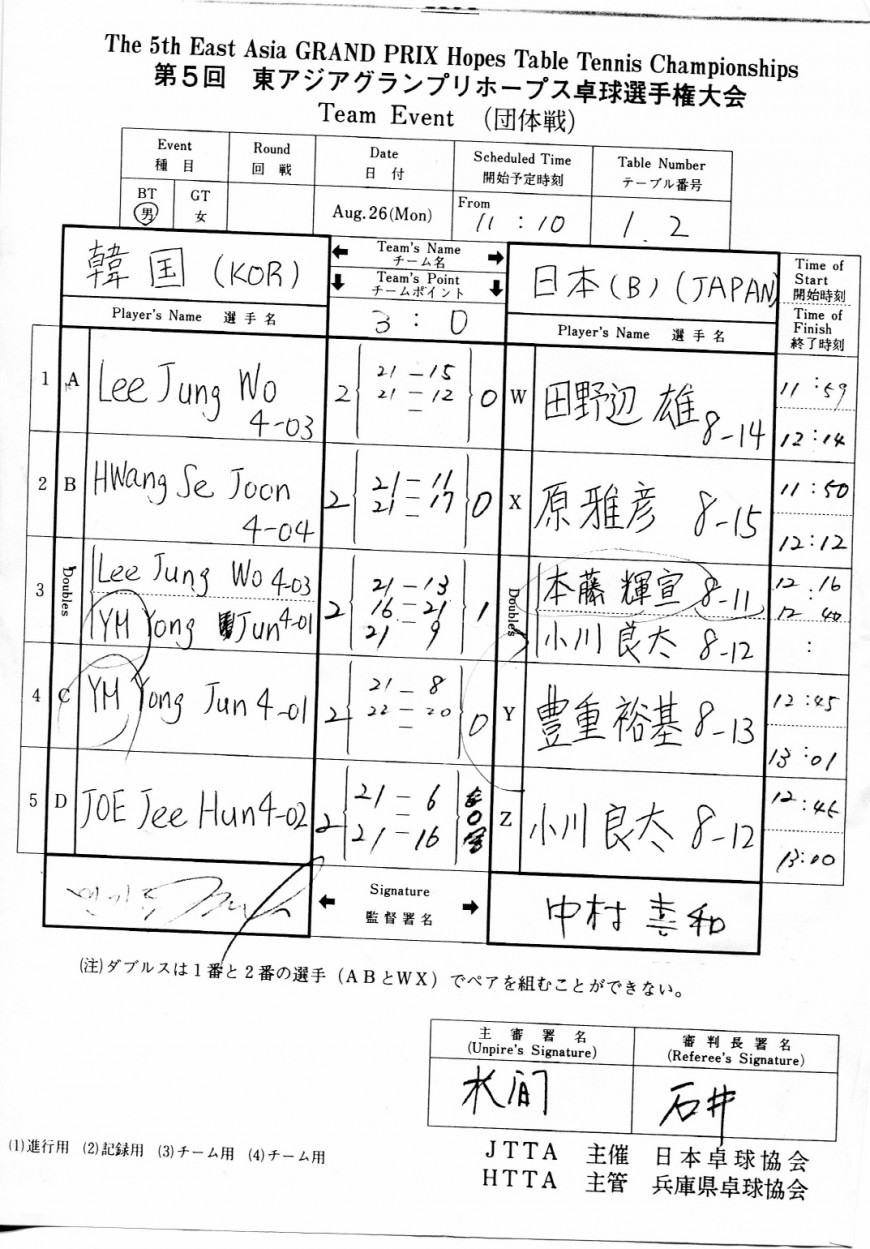 The 5th East Asia GRAND PRIX Hopes Table Tennis Championships
第5回 東アジアグランプリホープス卓球選手権大会
Team Event (団体戦)
Event 種目 Round 回戦 Date 日付 Scheduled Time 開始予定時刻 Table Number テーブル番号
BT 男 GT 女 Aug.26(Mon) From 11:10 1.2
韓国 (KOR) Team's Name チーム名 日本(B)(JAPAN) Time of Start 開始時刻
Team's Point チームポイント
Player's Name 選手名 3:0 Player's Name 選手名 Time of Finish 終了時刻
1 A Lee Jung Wo 4-03 2 21-15 21-12 - 0 W 田野辺 雄 8-14 11:59 12:14
2 B HWang Se Joon 4-04 2 21-11 21-17 - 0 X 原雅彦 8-15 11:50 12:12
3 Doubles Lee Jung Wo 4-03 2 21-13 16-21 21-9 1 Doubles 本藤輝宣 8-11 12:16 12:40
YM Yong Jun 4-01 小川良太 8-12 :
4 C YM Yong Jun 4-01 2 21-8 22-20 - 0 Y 豊重裕基 8-13 12:45 13:01
5 D JOE Jee Hun 4-02 2 21-6 - 21-16 0 Z 小川良太 8-12 12:46 13:00
Signature 監督署名 中村喜和
(注)ダブルスは1番と2番の選手(ABとWX)でペアを組むことができない。
主審署名 (Unpire's Signature) 審判長署名 (Referee's Signature)
石井
(1)進行用 (2)記録用 (3)チーム用 (4)チーム用
JTTA 主催 日本卓球協会
HTTA 主管 兵庫県卓球協会